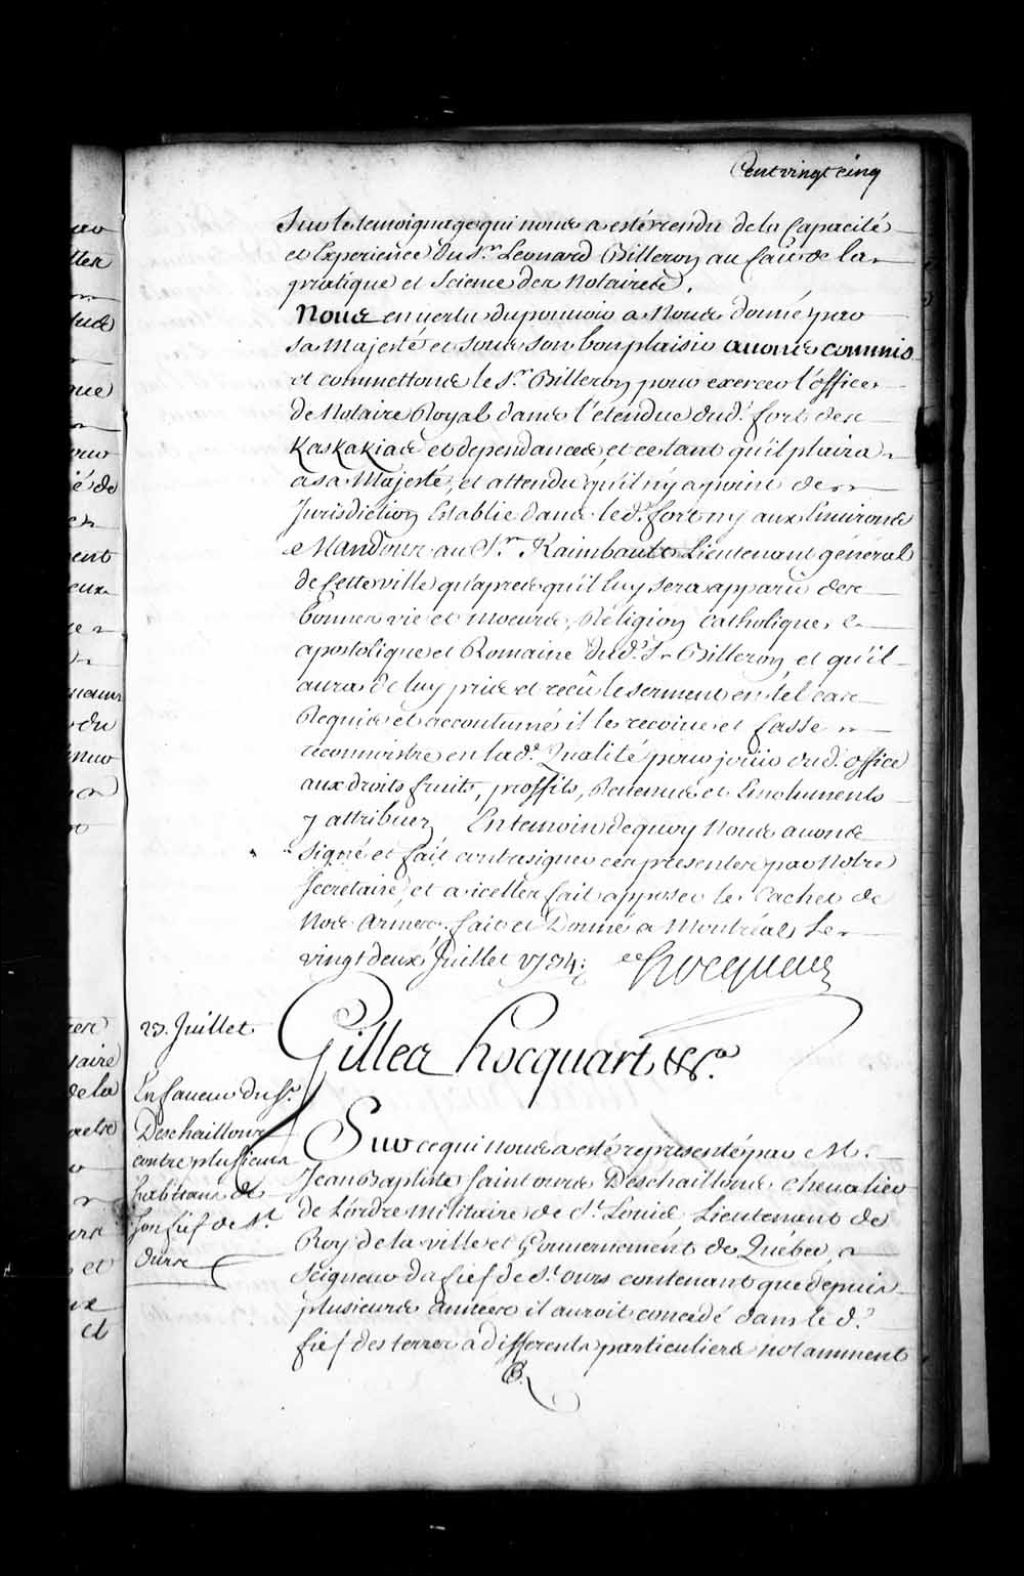 Cent vingt cinq
Sur le temoignage qui nous a esté rendu de la Capacité
et Experience du Sr. Leonard Billeron au fait de la
pratique et Science des Notaires.
Nous en vertu du pouvoir a Nous donné par
Sa Majesté et sous son bon plaisir auons commis
et commettons le Sr. Billeron pour exercer l'office
de Notaire Royal dans l'étendue dud. fort des
Kaskakias et dependances, et ce tant qu'il plaira
a sa Majesté, et attendu qu'il n'y a point de
Jurisdiction Establie dans led. fort ny aux Enuirons
Mandons au Sr. Raimbault Lieutenant général
de Cette ville qu'apres qu'il luy sera apparu des
bonnes vie et moeurs, Réligion Catholique
apostolique et Romaine dud. Sr Billeron, et qu'il
aura de luy pris et recû le serment en tel cas
Requis et accoutumé il le recoiue et fasse
reconnoistre en lad. Qualité pour jouir dud. office
aux droits fruits, proffits, Reuenus et Emoluments
y attribuez, En temoin de quoy Nous auons
signé et fait contresigner ces presentes par Notre
Secretaire, et a icelles fait apposer le Cachet de
Nos Armes. fait et Donné a Montréal le
vingt deux Juillet 1734. Hocquart
23. Juillet
Gilles Hocquart &c.a
En faueur du Sr.
Deschaillons
contre plusieurs
habitans de
son fief de St.
Ours
Sur ce qui nous a esté representé par M.
Jean Baptiste Saint ours Deschaillons Cheualier
de L'ordre militaire de St. Louis Lieutenant de
Roy de la ville et Gouuernement de Québec,
Seigneur du fief de St. ours contenant que depuis
plusieurs années il auroit concedé dans led.
fief des terres a differents particuliers notamment